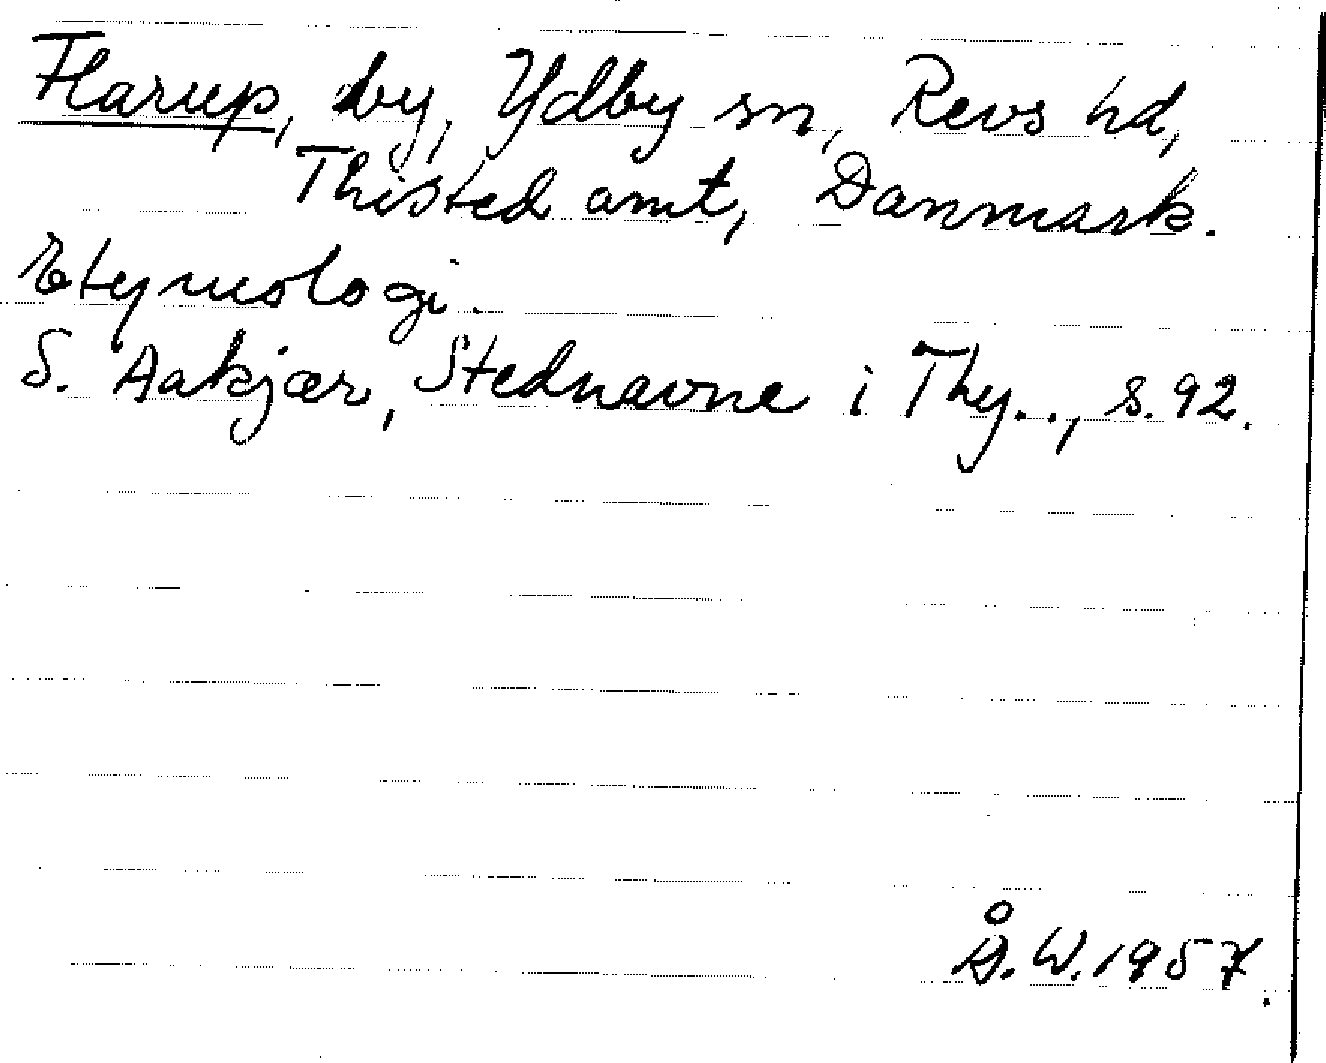 Flarup, by, Ydby sn, Revs hd,
Thisted amt, Danmark.
Etymologi.
S. Aakjær, Stednavne i Thy.., s. 92.
Å. W. 1957.